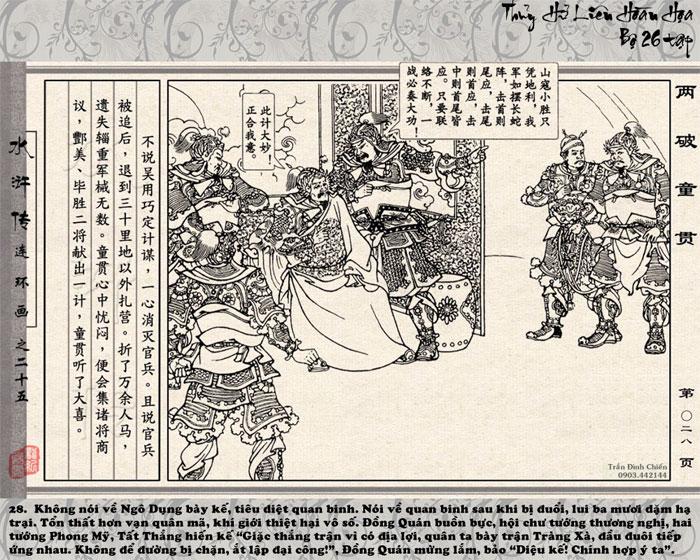 Thủy Hử Liên Hoàn Họa
Bộ 26 tập
两破童贯
第〇二八页
山寇小胜只
凭地利，我
军如摆长蛇
阵，击首则
尾应，击尾
则首应，击
中则首尾皆
应。只要联
络不断，一
战必奏大功！
此计大妙！
正合我意。
不说吴用巧定计谋，一心消灭官兵。且说官兵
被追后，退到三十里地以外扎营。折了万余人马，
遗失辎重军械无数。童贯心中忧闷，便会集诸将商
议，酆美、毕胜二将献出一计，童贯听了大喜。
水浒传连环画之二十五
Trần Đình Chiến
0903.442144
28. Không nói về Ngô Dụng bày kế, tiêu diệt quan binh. Nói về quan binh sau khi bị đuổi, lui ba mươi dặm hạ
trại. Tổn thất hơn vạn quân mã, khí giới thiệt hại vô số. Đồng Quán buồn bực, hội chư tướng thương nghị, hai
tướng Phong Mỹ, Tất Thắng hiến kế “Giặc thắng trận vì có địa lợi, quân ta bày trận Tràng Xà, đầu đuôi tiếp
ứng nhau. Không để đường bị chặn, ắt lập đại công!”, Đồng Quán mừng lắm, bảo “Diệu kế! Chính hợp ý ta”.